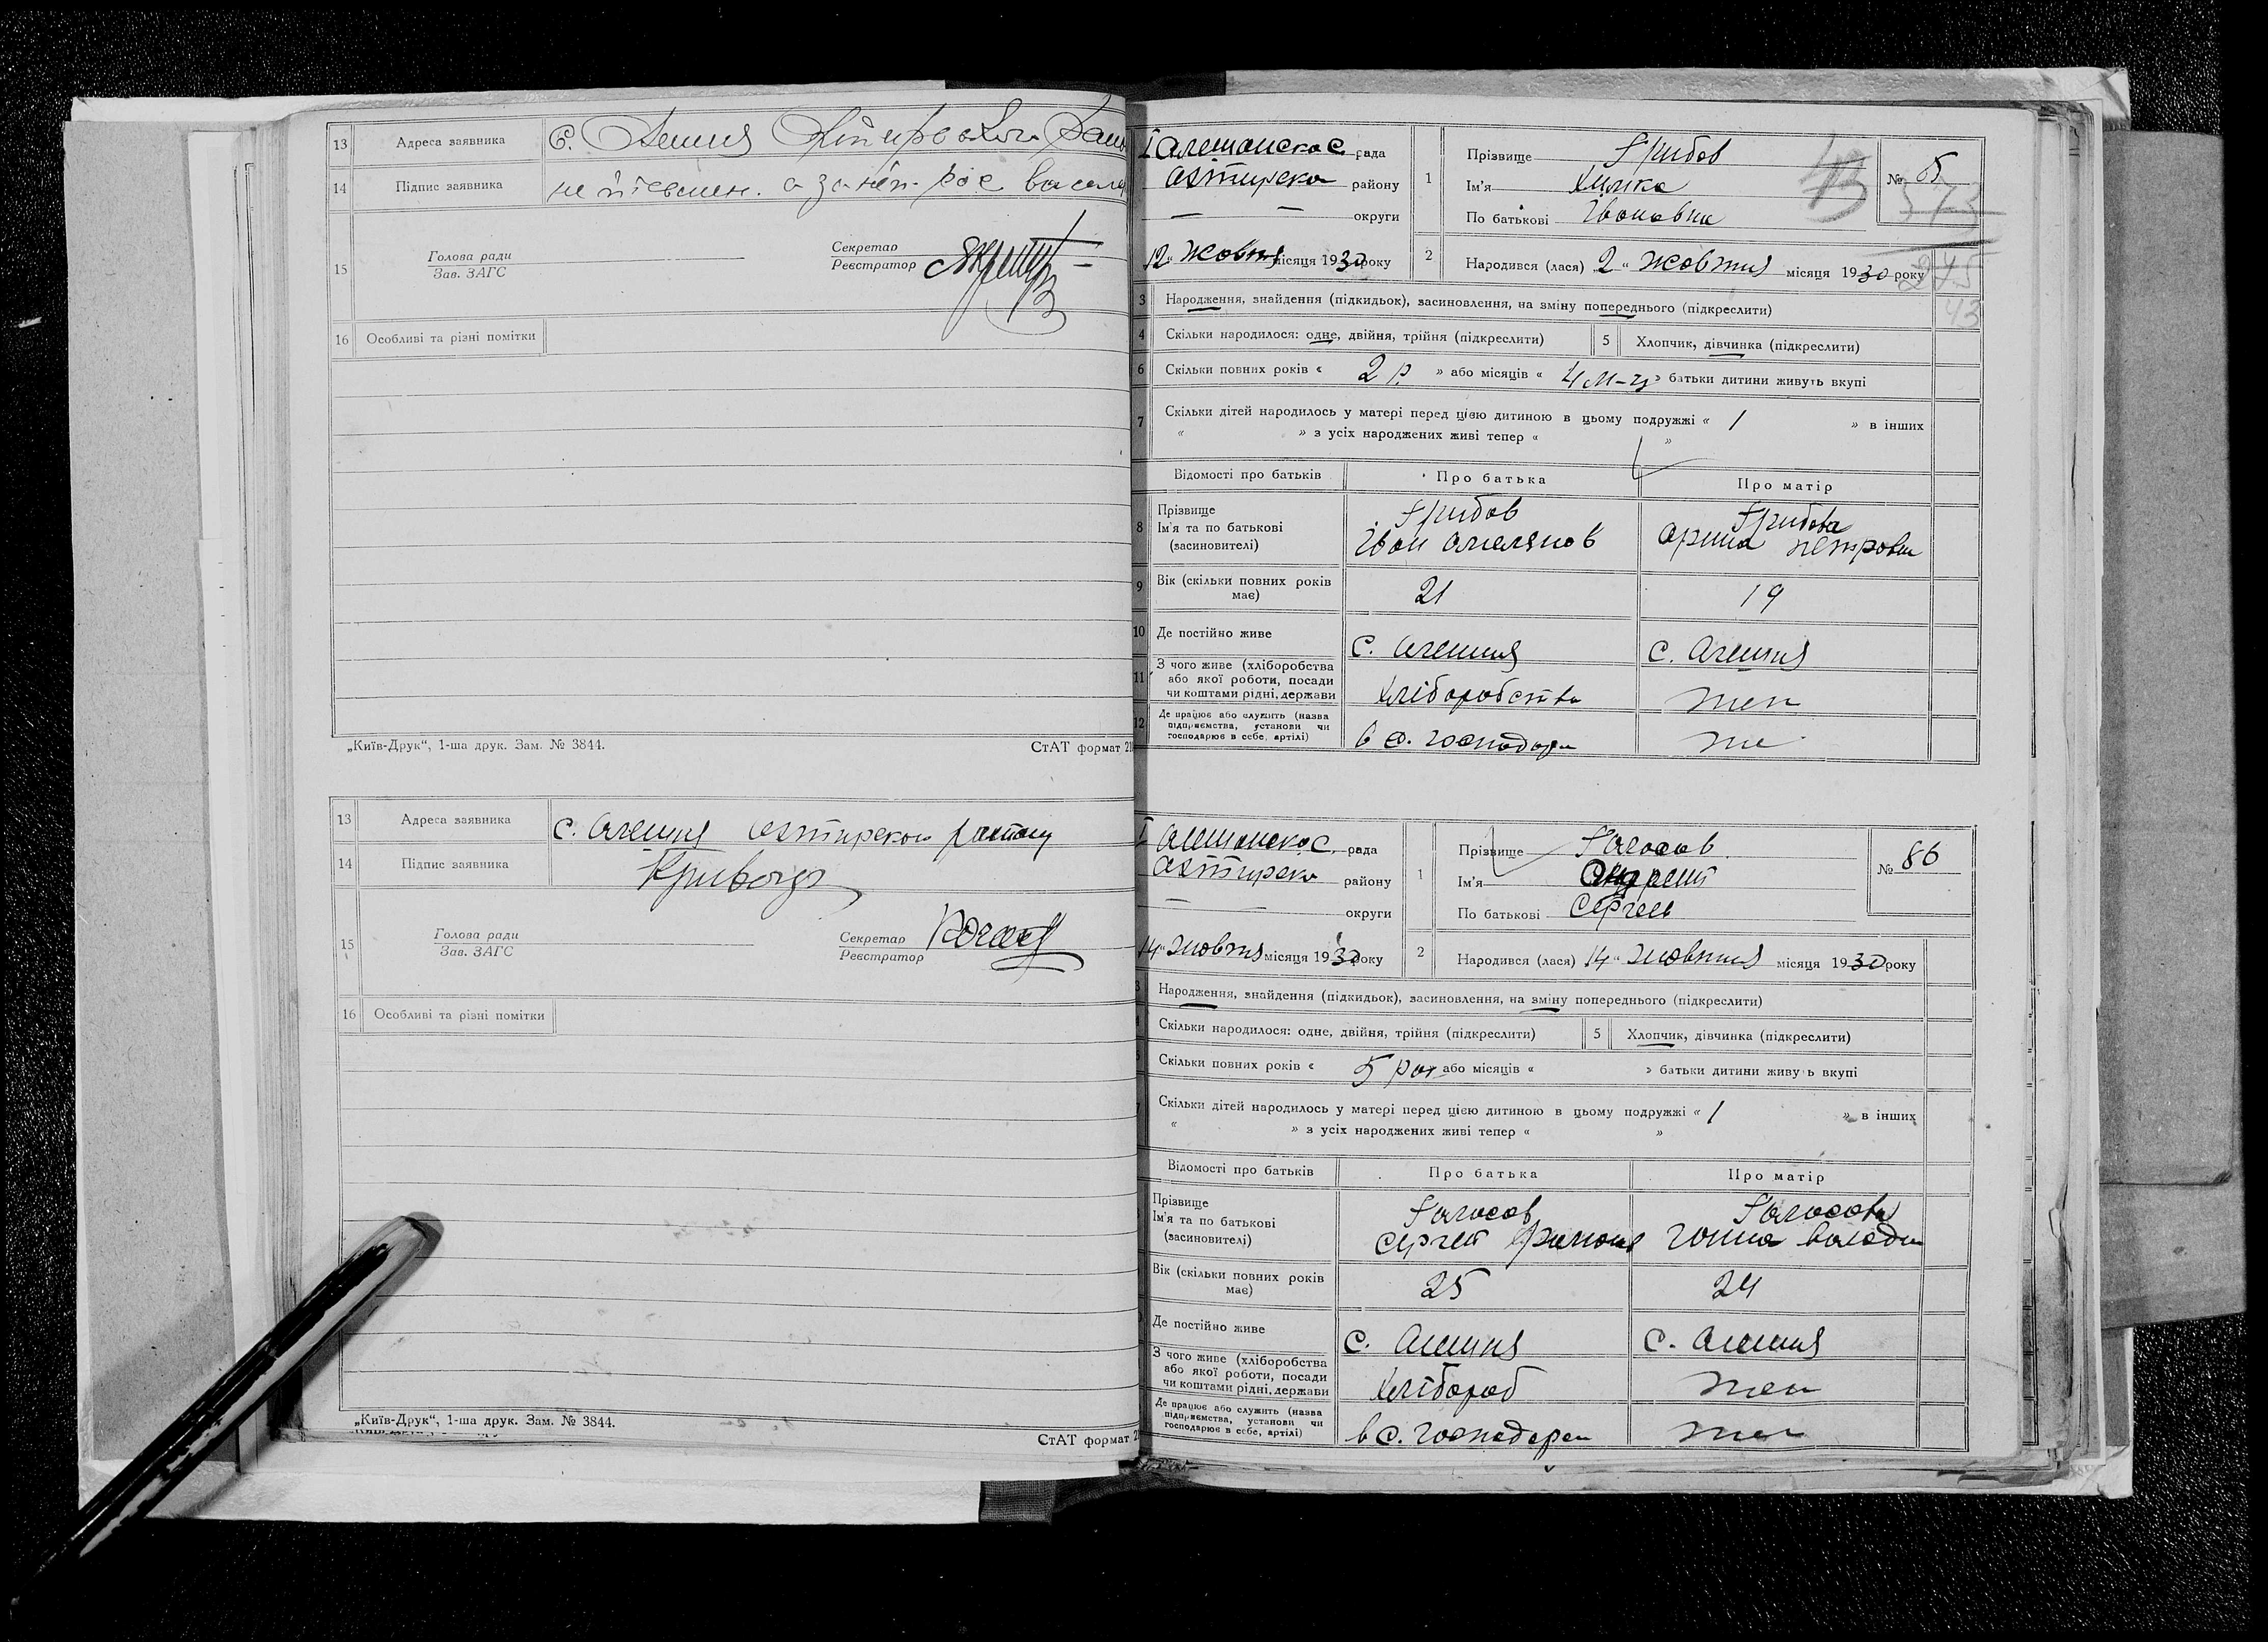 13 Адреса заявника с.
14 Підпис заявника не письмен. а за неп.
15 Голова ради
Зав. ЗАГС
Секретар
Реєстратор
16 Особливі та різні помітки
„Київ-Друк“, 1-ша друк. Зам. № 3844.
СтАТ формат
13 Адреса заявника с. Алешня Охтирского району
14 Підпис заявника
15 Голова ради
Зав. ЗАГС
Секретар
Реєстратор
16 Особливі та різні помітки
„Київ-Друк“, 1-ша друк. Зам. № 3844.
СтАТ формат
Алешанска с. рада
Охтирска району
— — округи
12 „ жовтня місяця 1930 року
1 Прізвище Грибов
Ім'я
По батькові Івановна
№ 5
2 Народився (лася) 2 „ жовтня місяця 1930 року
3 Народження, знайдення (підкидьок), засиновлення, на зміну попереднього (підкреслити)
43
4 Скільки народилося: одне, двійня, трійня (підкреслити)
5 Хлопчик, дівчинка (підкреслити)
6 Скільки повних років « 2 р. » або місяців « 4 м-ц » батьки дитини живуть вкупі
7 Скільки дітей народилось у матері перед цією дитиною в цьому подружжі « 1 » в інших
« » з усіх народжених живі тепер « »
Відомості про батьків Про батька Про матір
8 Прізвище
Ім'я та по батькові
(засиновителі)
Грибов
Іван Омелянов
Грибова
Орина Петровна
9 Вік (скільки повних років має) 21 19
10 Де постійно живе с. Алешня с. Алешня
11 З чого живе (хліборобства
або якої роботи, посади
чи коштами рідні, держави
Хліборобства теж
12 Де працює або служить (назва
підприємства, установи чи
господарює в себе, артілі)
в с. господар
Алешанска с. рада
Охтирска району
— — округи
14 „ жовтня місяця 1930 року
1 Прізвище Голосов
Ім'я Андрей
По батькові Сергеев
№ 86
2 Народився (лася) 14 „ жовтня місяця 1930 року
Народження, знайдення (підкидьок), засиновлення, на зміну попереднього (підкреслити)
Скільки народилося: одне, двійня, трійня (підкреслити)
5 Хлопчик, дівчинка (підкреслити)
Скільки повних років « 5 рок або місяців « » батьки дитини живуть вкупі
Скільки дітей народилось у матері перед цією дитиною в цьому подружжі « 1 » в інших
« » з усіх народжених живі тепер « »
Відомості про батьків Про батька Про матір
Прізвище
Ім'я та по батькові
(засиновителі)
Голосов
Сергей
Голосова
Вік (скільки повних років має) 25 24
Де постійно живе с. Алешня с. Алешня
З чого живе (хліборобства
або якої роботи, посади
чи коштами рідні, держави
Хлібороб теж
Де працює або служить (назва
підприємства, установи чи
господарює в себе, артілі)
в с. господарст